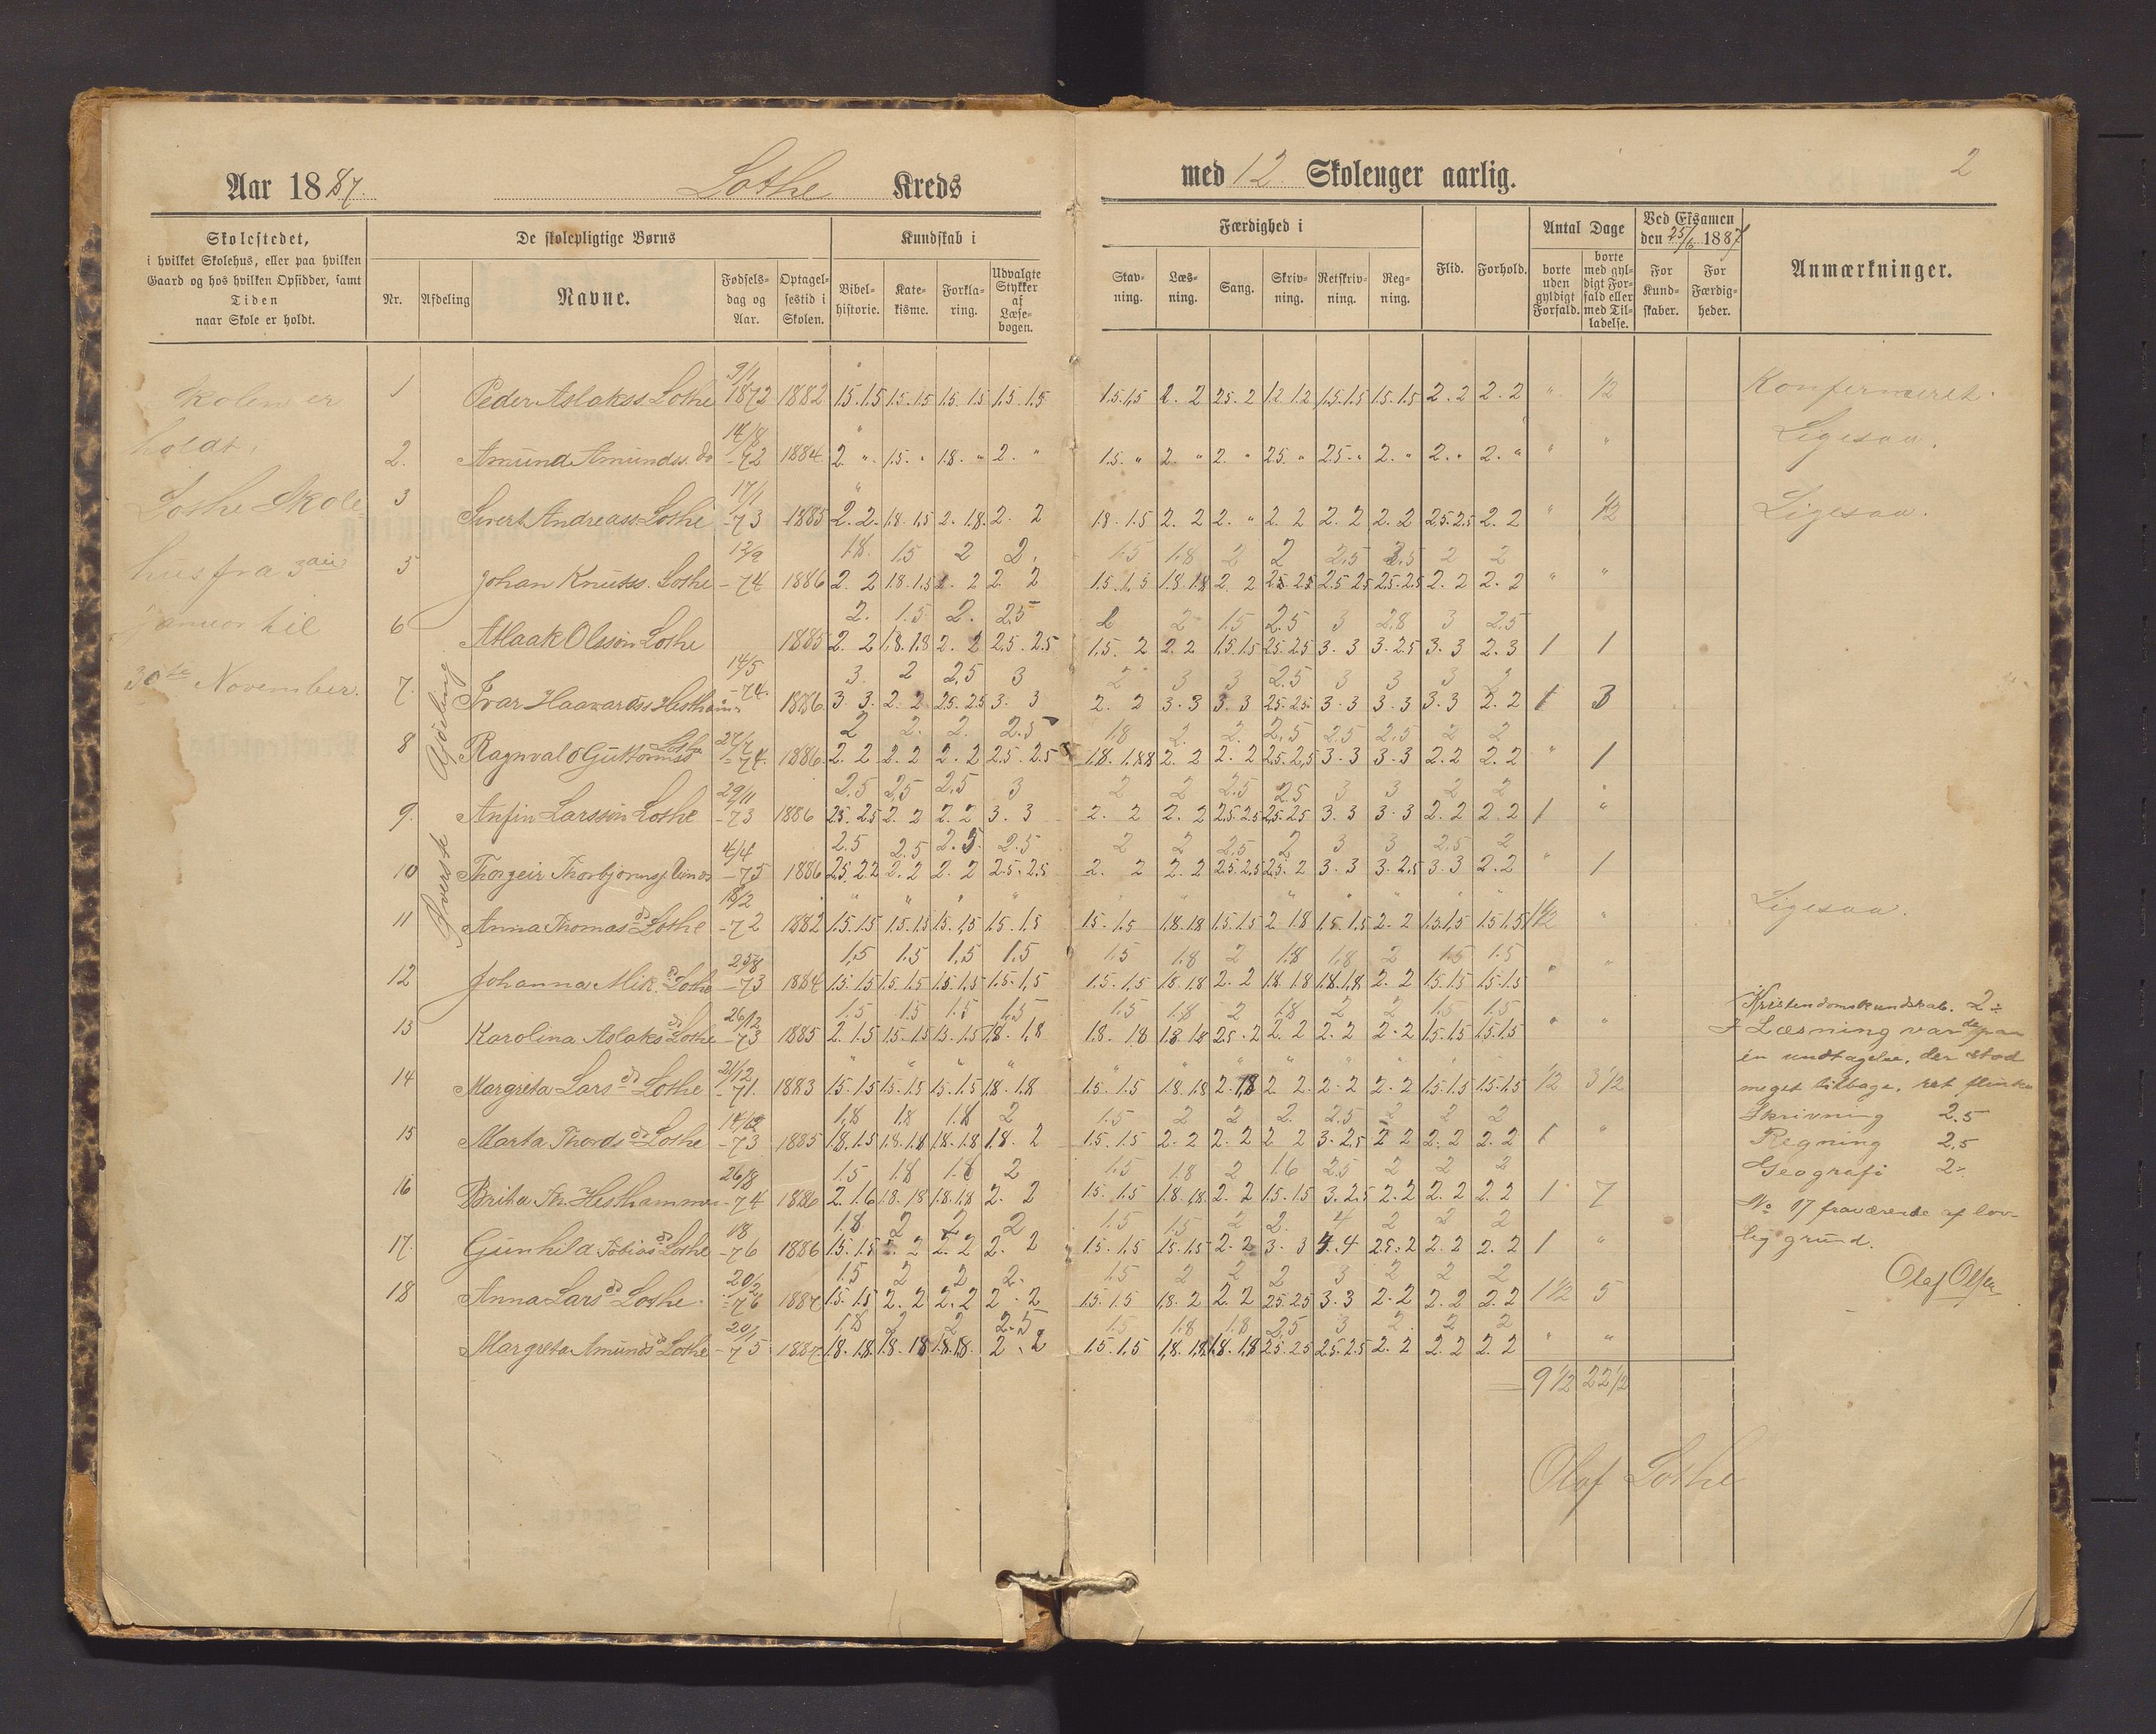 Aar 1887. Lothe Kreds med 12 Skoleuger aarlig. 2
Skolestedet, i hvilket Skolehus, eller paa hvilken Gaard og hos hvilken Opsidder, samt Tiden naar Skole er holdt.
De skolepligtige Børns
Nr. Afdeling Navne. Fødselsdag og Aar. Optagelsestid i Skolen.
Kundskab i
Bibelhistorie. Katekisme. Forklaring. Udvalgte Stykker af Læsebogen.
Færdighed i
Stavning. Læsning. Sang. Skrivning. Retskrivning. Regning.
Flid. Forhold.
Antal Dage
borte uden gyldigt Forfald. borte med gyldigt Forfald eller med Tilladelse.
Ved Eksamen den 25/6 1887
For Kundskaber. For Færdigheder.
Anmærkninger.
Skolen er
holdt i
Lothe Skole
hus fra 3die
Januar til
30te November.
Øverste Afdeling
1 Peder Aslakss. Lothe 9/1 1872 1882 1.5.1.5 1.5.1.5 1.5.1.5 1.5.1.5 1.5.1.5 2.2 2.5.2 1.5.1.5 1.5.1.5 2.2 2.2 " 1/2 Konfermeret.
2. Amund Amundss. do 14/8 -72 1884 2. " 1.5. " 1.8. " 2. " 1.5. " 2. " 2. " 2.5. " 2.5. " 2. " 2. " 2. " " " Ligesaa.
3 Sivert Andreass. Lothe 17/1 -73 1885 2.2. 1.8.1.5 2.1.8. 2.2 1.8.1.5 2.2 2. " 2.2 2.2 2.2 2.5.2.5 2.2 " 1/2 Ligesaa.
1.8. 1.5 2 2. 1.5 1.8 2 2 2.5 2.5 2 2
5 Johan Knutss. Lothe 12/9 -74 1886 2.2 1.8.1.5 2.2 2.2 1.5.1.5 1.8.1.8 2.2 2.5.2.5 2.5.2.5 2.5.2.5 2.2 2.2 " "
2. 1.5 2. 2.5 2 2 1.5 2.5 3 2.8 3 2.5
6 Aslaak Olsson Lothe 1885 2.2 1.8.1.8 2.2 2.5.2.5 1.5.2 2.2 1.5.1.5 2.5.2.5 3.3 3.2.5 3.3 2.3 1 1
3. 2 2.5 3 2 3 3 2.5 3 3 3 2
7. Ivar Haavardss Hesthamr 14/5 -74. 1886 3.3. 2.2 2.5.2.5 3.3 2.2 3.3 3.3 2.5.2.5 3.3 3.3 3.3 2.2 1 3
2 2. 2. 2.5 1.8 2. 2. 2.5 2.5 2.5 2 2
8 Ragnvald Guttormss Lothe 27/7 -74. 1886 2.2 2.2 2.2 2.5.2.5 2.2 2.2 2.5.2.5 3.3 3.3 2.2 2.2 " 1
2.5 2.5 2.5 3 2 2 2.5 2.5 3 3 2 2
9. Anfin Larsson Lothe 29/11 -73 1886 2.5.2.5 2.2 2.2 3.3 2.2 2.2 2.5.2.5 2.5.2.5 3.3 3.3 2.2 2.2 1 "
2.5 2.5 2.5. 2.5 2 2 2.5 2 3 3 2.5 2
10 Thorgeir Thorbjørns. 4/4 -75 1886 2.2 2.2 2.5.2.5 2.2 2.2 2.5.2.5 2.5.2 3.3 3.2.5 3.3 2.2 " 1
11 Anna Thomasd. Lothe -72 1882 1.5.1.5 1.5.1.5 1.5.1.5 1.5.1.5 1.5.1.5 1.8.1.8 1.5.1.5 2.1.8 1.5.1.5 2.2 1.5.1.5 1.5.1.5 1 1/2 " Ligesaa.
1.5 1.5 1.5 1.5 1.5 1.8 2 1.8 1.8 2 1.5 1.5
12 Johanna Mik.d. Lothe 25/8 -73 1884 1.5.1.5 1.5.1.5 1.5.1.5 1.5.1.5 1.5.1.5 1.8.1.8 2.2 1.8.1.8 1.8.1.8 2.2 1.5.1.5 1.5.1.5 " "
1.5 1.5 1.5 1.5 1.5 1.8 2 1.8 2 2 1.5 1.5
13 Karolina Aslaksd. Lothe 26/12 -73 1885 2.1.5 1.5.1.5 1.5.1.5 1.8.1.8 1.8.1.8 1.8.1.8 2.5.2 2.2 2.2 2.2 1.5.1.5 1.5.1.5 " "
14 Margreta Larsd. Lothe 21/12 -71. 1883 1.5.1.5 1.5.1.5 1.5.1.5 1.8.1.8 1.5.1.5 1.8.1.8 2.1.8 2.2. 2.2 2.2 1.5.1.5 1.5.1.5 1/2 3 1/2
1.8 1.8 1.8 2 1.5 2 2 2. 2.5 2 2 2
15 Marta Thordsd. Lothe 14/12 -73 1885 1.8.1.5 1.8.1.8 1.8.1.8 1.8.2 1.5.1.5 2.2 2.2 2 2 3.2.5 2 2 2.2 2.2 1 "
1.5 1.8 1.8 2 1.5 1.8 2 1.6 2.5 2 2 2
16 Brita Hesthammer 26/8 -74 1886 2.1.6 1.8.1.8 1.8.1.8 2.2 1.5.1.5 1.8.1.8 2.2 1.5.1.5 3.2.5 2.2 2.2 2.2 1 7
1.8 2 2 2 1.5 1.5 2 2. 4 2 2 2
17. Gunhild Tobiasd. Lothe -76 1886 1.5.1.5 2 2.2 2.2 1.5.1.5 1.5.1.5 2.2 3.3 4.4 2.5.2 2.2 2.2 1 "
1.5 2 2 2. 1.5 2 2 2 3 2 2 2
18 Anna Larsd. Lothe. 20/2 -76 1887 1.5.1.5 2.2 2.2 2.2 1.5.1.5 1.8.2 2.2 2.5.2.5 3.3 2.2 2.2 2.2 1 1/2 5
1.8 2 2 2.5 1.5 1.8 1.8 2.5 3 2. 2 2
Margreta Amundsd. Lothe 20/1 -75 1887 1.8.1.8 1.8.1.8 1.8.1.8. 2.2 1.5.1.5 1.8.1.8 1.8.1.8 2.5.2.5 2.5.2.5 2.2 2.2 2.2 " "
9 1/2 22 1/2
Kristendomskundskab. 2÷
I Læsning var de paa
en undtagelse, der stod
meget tilbage, ret flinke
Skrivning 2.5
Regning 2.5
Geografi 2÷
No 17 fraværende af lov-
lig grund.
Olaf Olsen
Olaf Lothe